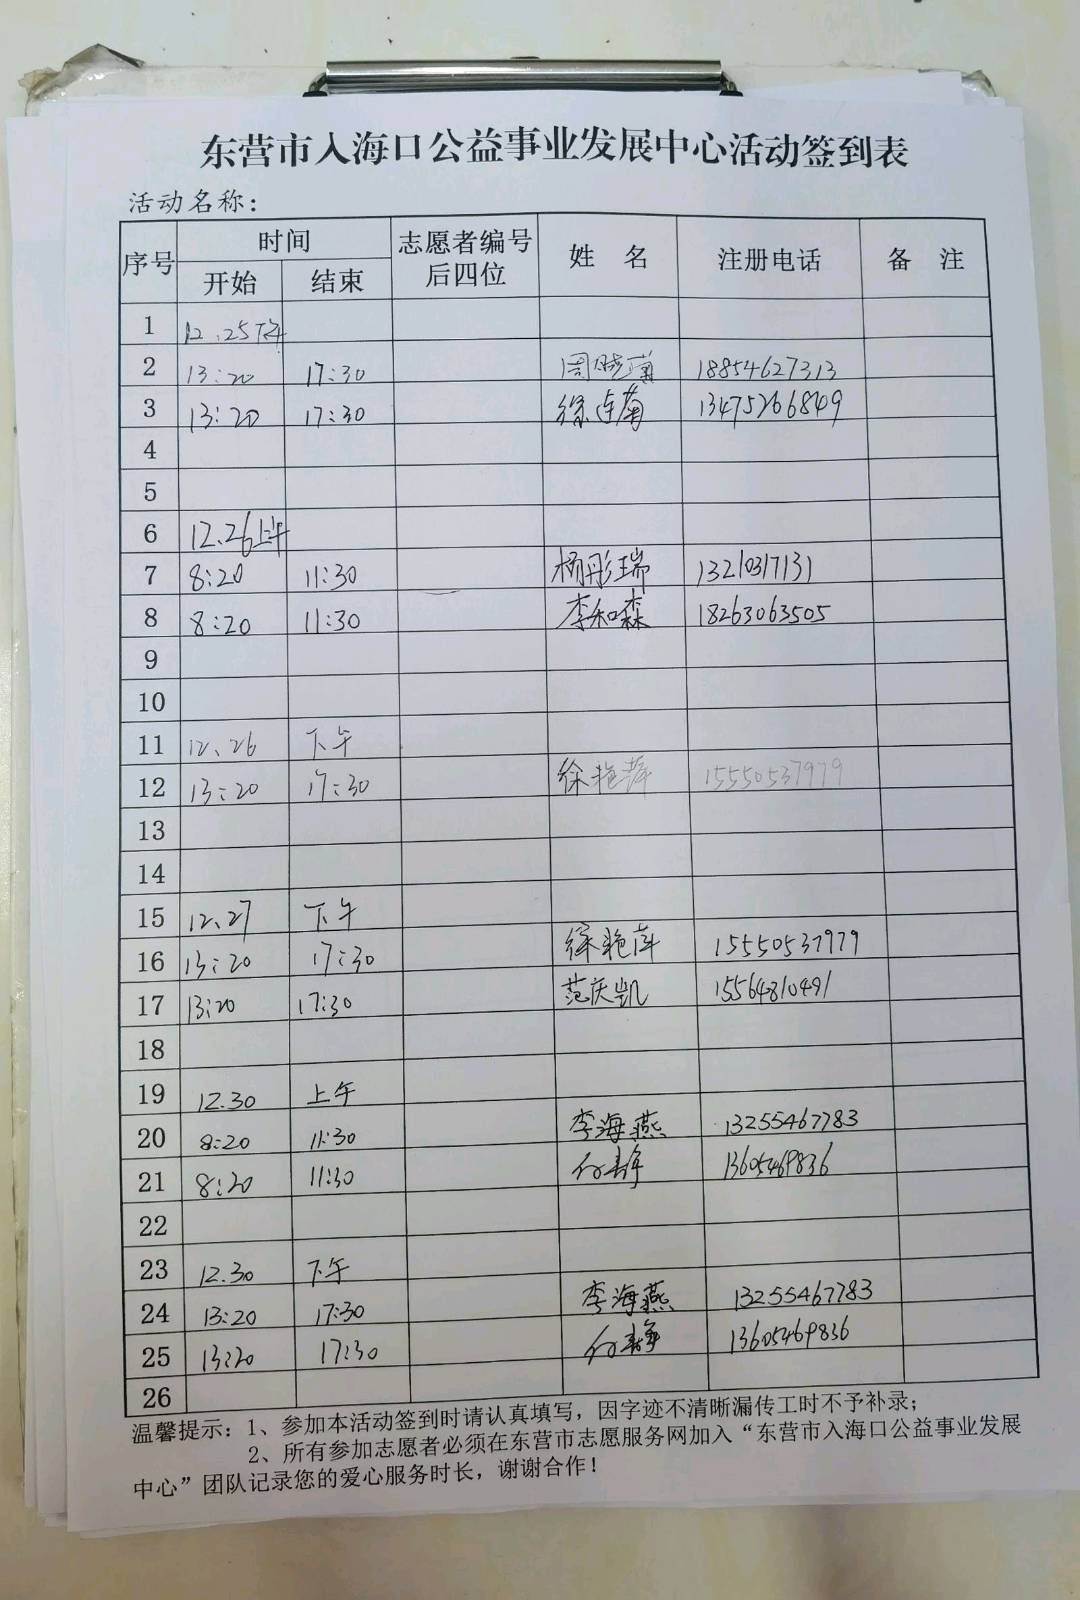 东营市入海口公益事业发展中心活动签到表
活动名称：
序号 时间 志愿者编号后四位 姓 名 注册电话 备 注
开始 结束
1 12.25下午
2 13:20 17:30 周晓 18854627313
3 13:20 17:30 徐连菊 13475266849
4
5
6 12.26上午
7 8:20 11:30 杨彤瑞 13210317131
8 8:20 11:30 李和森 18263063505
9
10
11 12.26 下午
12 13:20 17:30 徐艳萍 15550537979
13
14
15 12.27 下午
16 13:20 17:30 徐艳萍 15550537979
17 13:20 17:30 范庆凯 15564810491
18
19 12.30 上午
20 8:20 11:30 李海燕 13255467783
21 8:20 11:30 付静 13605469836
22
23 12.30 下午
24 13:20 17:30 李海燕 13255467783
25 13:20 17:30 付静 13605469836
26
温馨提示：1、参加本活动签到时请认真填写，因字迹不清晰漏传工时不予补录；
2、所有参加志愿者必须在东营市志愿服务网加入“东营市入海口公益事业发展
中心”团队记录您的爱心服务时长，谢谢合作！